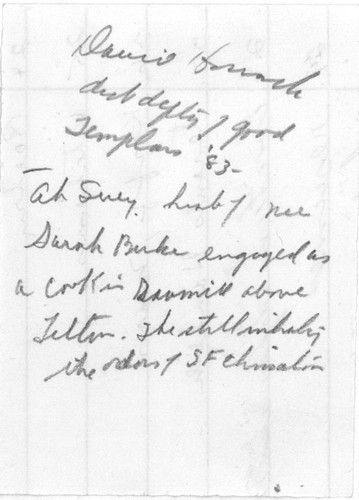 David
dist dpty of good
Templars '83-
Ah Suey. husb of nee
Sarah Burke engaged as
a cook in Sawmill above
Felton. She still inhales
the odors of SF Chinatown